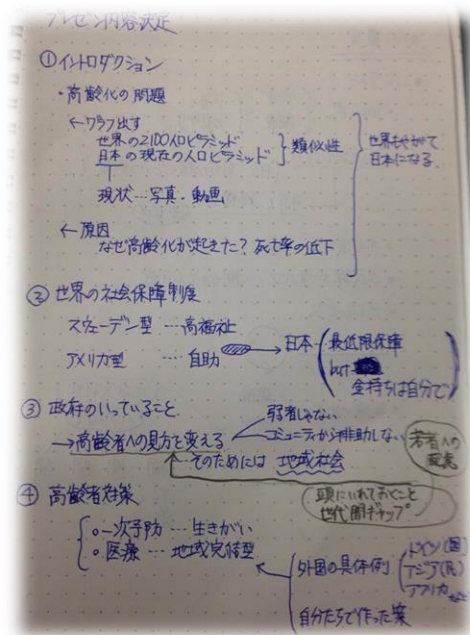 プレゼン内容決定
①イントロダクション
・高齢化の問題
←グラフ出す
世界の2100人口ピラミッド
日本の現在の人口ピラミッド
類似性
世界もやがて
日本になる
現状…写真・動画
←原因
なぜ高齢化が起きた？死亡率の低下
②世界の社会保障制度
スウェーデン型…高福祉
アメリカ型…自助
→日本
最低限保障
but
金持ちは自分で
③政府のいっていること
→高齢者への見方を変える
弱者じゃない
コミュニティから排除しない
そのためには地域社会
若者への
頭にいれておくこと
世代間ギャップ
④高齢者対策
○一次予防…生きがい
○医療…地域完結型
外国の具体例
ドイツ(国)
アジア(民)
アフリカなど
自分たちで作った案